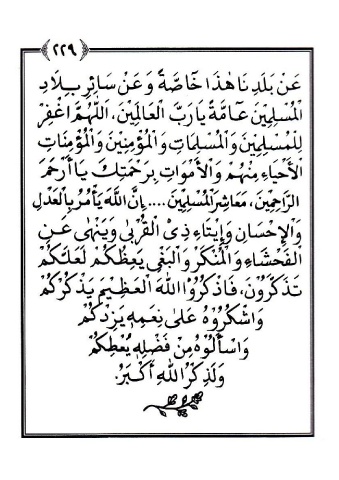 ٢٢٩
عَنْ بَلَدِنَا هٰذَا خَاصَّةً وَعَنْ سَائِرِ بِلَادِ
الْمُسْلِمِيْنَ عَامَّةً يَا رَبَّ الْعَالَمِيْنَ، اَللّٰهُمَّ اغْفِرْ
لِلْمُسْلِمِيْنَ وَالْمُسْلِمَاتِ وَالْمُؤْمِنِيْنَ وَالْمُؤْمِنَاتِ
الْأَحْيَاءِ مِنْهُمْ وَالْأَمْوَاتِ بِرَحْمَتِكَ يَا أَرْحَمَ
الرَّاحِمِيْنَ، مَعَاشِرَ الْمُسْلِمِيْنَ .... إِنَّ اللهَ يَأْمُرُ بِالْعَدْلِ
وَالْإِحْسَانِ وَإِيْتَاءِ ذِى الْقُرْبٰى وَيَنْهٰى عَنِ
الْفَحْشَاءِ وَالْمُنْكَرِ وَالْبَغْيِ يَعِظُكُمْ لَعَلَّكُمْ
تَذَكَّرُوْنَ، فَاذْكُرُوا اللهَ الْعَظِيْمَ يَذْكُرْكُمْ
وَاشْكُرُوْهُ عَلٰى نِعَمِهِ يَزِدْكُمْ
وَاسْأَلُوْهُ مِنْ فَضْلِهِ يُعْطِكُمْ
وَلَذِكْرُ اللهِ أَكْبَرُ.